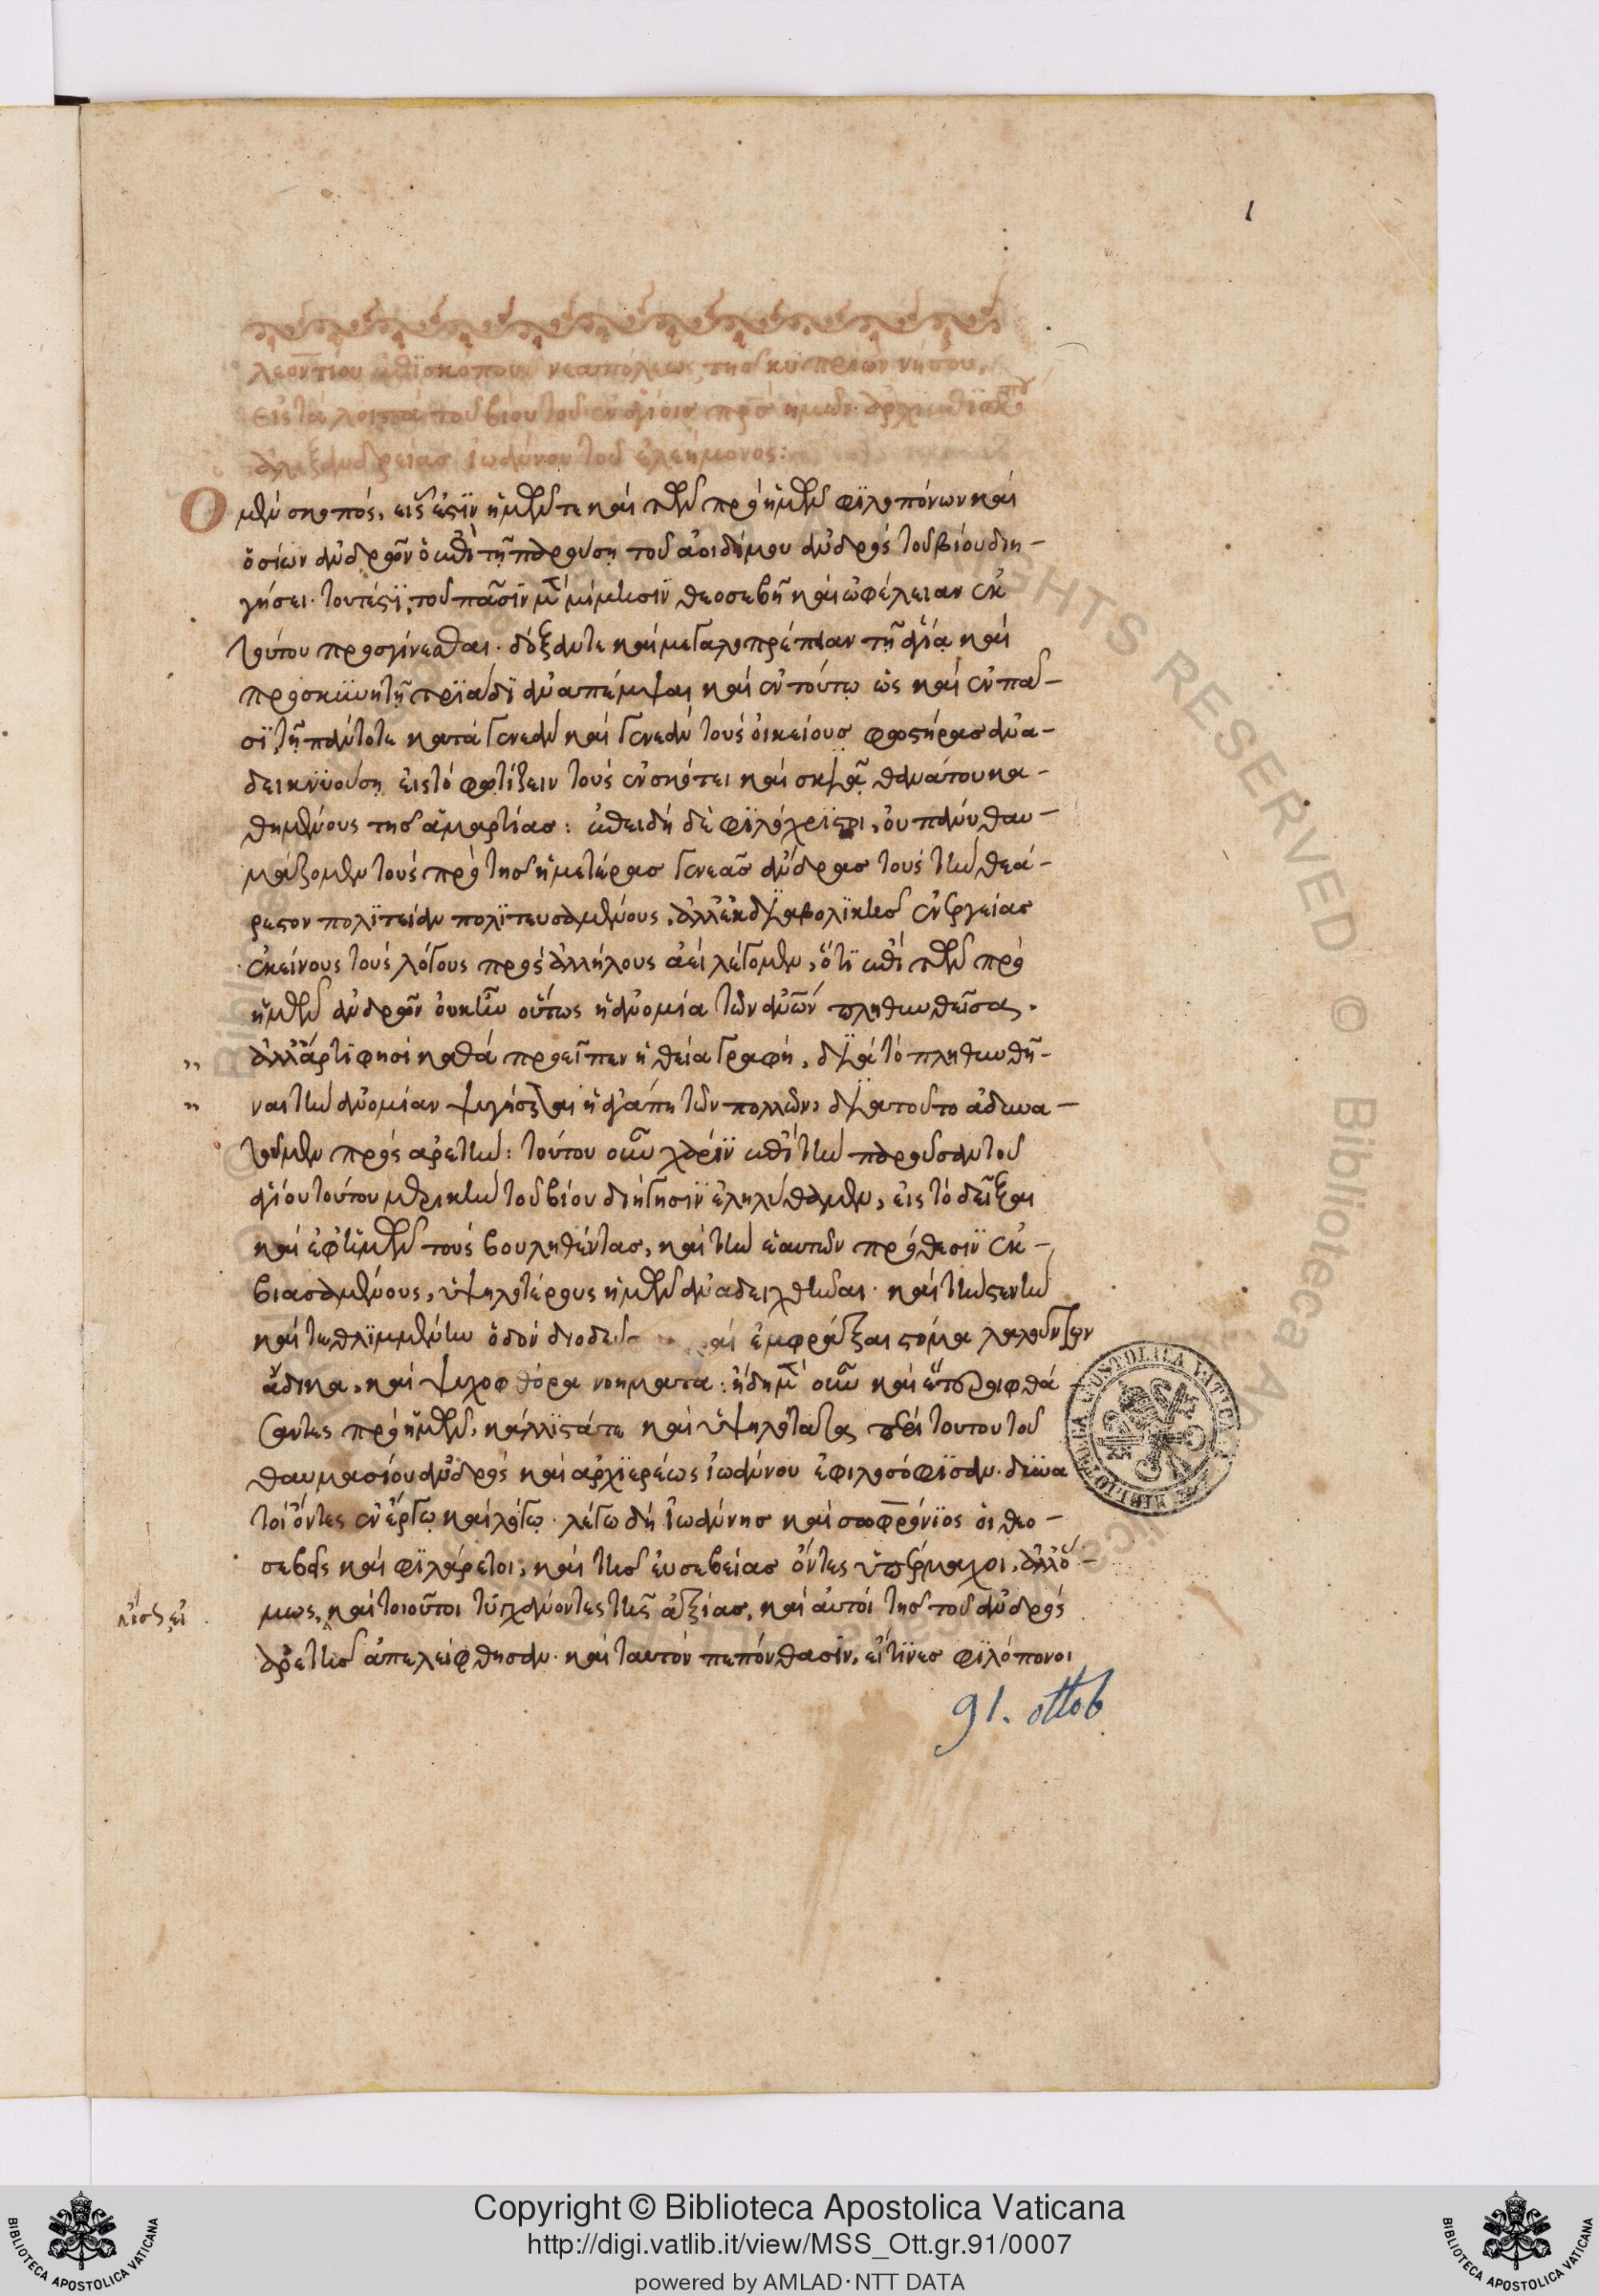 1
λεοντίου ἐπισκόπου νεαπόλεως τῆς κυπρίων νήσου,
εἰς τὰ λοιπὰ τοῦ βίου τοῦ ἐν ἁγίοις πρς ἡμῶν ἀρχιεπισκπου
ἀλεξανδρείας ἰωάννου τοῦ ἐλεήμονος:
Ο μὲν σκοπός, εἷς ἐστιν ἡμῶν τε καὶ τῶν πρὸ ἡμῶν φιλοπόνων καὶ
ὁσίων ἀνδρῶν ὁ ἐπὶ τῇ παρούσῃ τοῦ ἀοιδίμου ἀνδρὸς τοῦ βίου διη-
γήσει. τουτέστι, τοῦ πᾶσιν μὲν μίμησιν θεοσεβῆ καὶ ὠφέλειαν ἐκ
τούτου προσγίνεσθαι. δόξαν τε καὶ μεγαλοπρέπειαν τῇ ἁγίᾳ καὶ
προσκυνητῇ τριάδι ἀναπέμψαι καὶ ἐν τούτῳ ὡς καὶ ἐν πᾶ-
σι τῇ πάντοτε κατὰ γενεὰν καὶ γενεὰν τοὺς οἰκείους φωστήρας ἀνα-
δεικνυούσῃ εἰς τὸ φωτίζειν τοὺς ἐν σκότει καὶ σκιᾷ θανάτου κα-
θημένους τῆς ἁμαρτίας: ἐπειδὴ δὲ φιλόχριστοι, οὐ πάνυ θαυ-
μάζομεν τοὺς πρὸ τῆς ἡμετέρας γενεᾶς ἄνδρας τοὺς τὴν θεά-
ρεστον πολιτείαν πολιτευσαμένους, ἀλλ' ἐκ διαβολικῆς ἐνεργείας
ἐκείνους τοὺς λόγους πρὸς ἀλλήλους ἀεὶ λέγομεν, ὅτι ἐπὶ τῶν πρὸ
ἡμῶν ἀνδρῶν οὐκ ἦν οὕτως ἡ ἀνομία τῶν ἀνων πληθυνθεῖσα.
" ἀλλ' ἄρτι φησὶ καθὰ προεῖπεν ἡ θεία γραφή, διὰ τὸ πληθυνθῆ-
" ναι τὴν ἀνομίαν ψυγήσεται ἡ ἀγάπη τῶν πολλῶν, διὰ τοῦτο ἀδυνα-
τοῦμεν πρὸς ἀρετήν: τούτου οὖν χάριν ἐπὶ τὴν παροῦσαν τοῦ
ἁγίου τούτου μερικὴν τοῦ βίου διήγησιν ἐληλύθαμεν, εἰς τὸ δεῖξαι
καὶ ἐφ' ἡμῶν τοὺς βουληθέντας, καὶ τὴν ἑαυτῶν πρόθεσιν ἐκ-
βιασαμένους, ὑψηλοτέρους ἡμῶν ἀναδειχθῆναι. καὶ τὴν στενὴν
καὶ τεθλιμμένην ὁδὸν διοδεῦ καὶ ἐμφράξαι στόμα λαλούντων
ἄδικα, καὶ ψυχοφθόρα νοήματα: ἤδη μὲν οὖν καὶ ἕτεροι φθά-
σαντες πρὸ ἡμῶν, κάλλιστά τε καὶ ὑψηλότατα περὶ τούτου τοῦ
θαυμασίου ἀνδρὸς καὶ ἀρχιερέως ἰωάννου ἐφιλοσόφισαν. δυνα
τοὶ ὄντες ἐν ἔργῳ καὶ λόγῳ. λέγω δὴ ἰωάννης καὶ σωφρόνιος οἱ θεο-
σεβεῖς καὶ φιλάρετοι, καὶ τῆς εὐσεβείας ὄντες ὑπέρμαχοι, ἀλλ' ὅ-
μως, καὶ τοιοῦτοι τυγχάνοντες τῆς ἀξίας, καὶ αὐτοὶ τῆς τοῦ ἀνδρὸς
ἀρετῆς ἀπελείφθησαν. καὶ ταυτὸν πεπόνθασιν, εἴ τινες φιλόπονοι
91. ottob
Copyright © Biblioteca Apostolica Vaticana
http://digi.vatlib.it/view/MSS_Ott.gr.91/0007
powered by AMLAD·NTT DATA